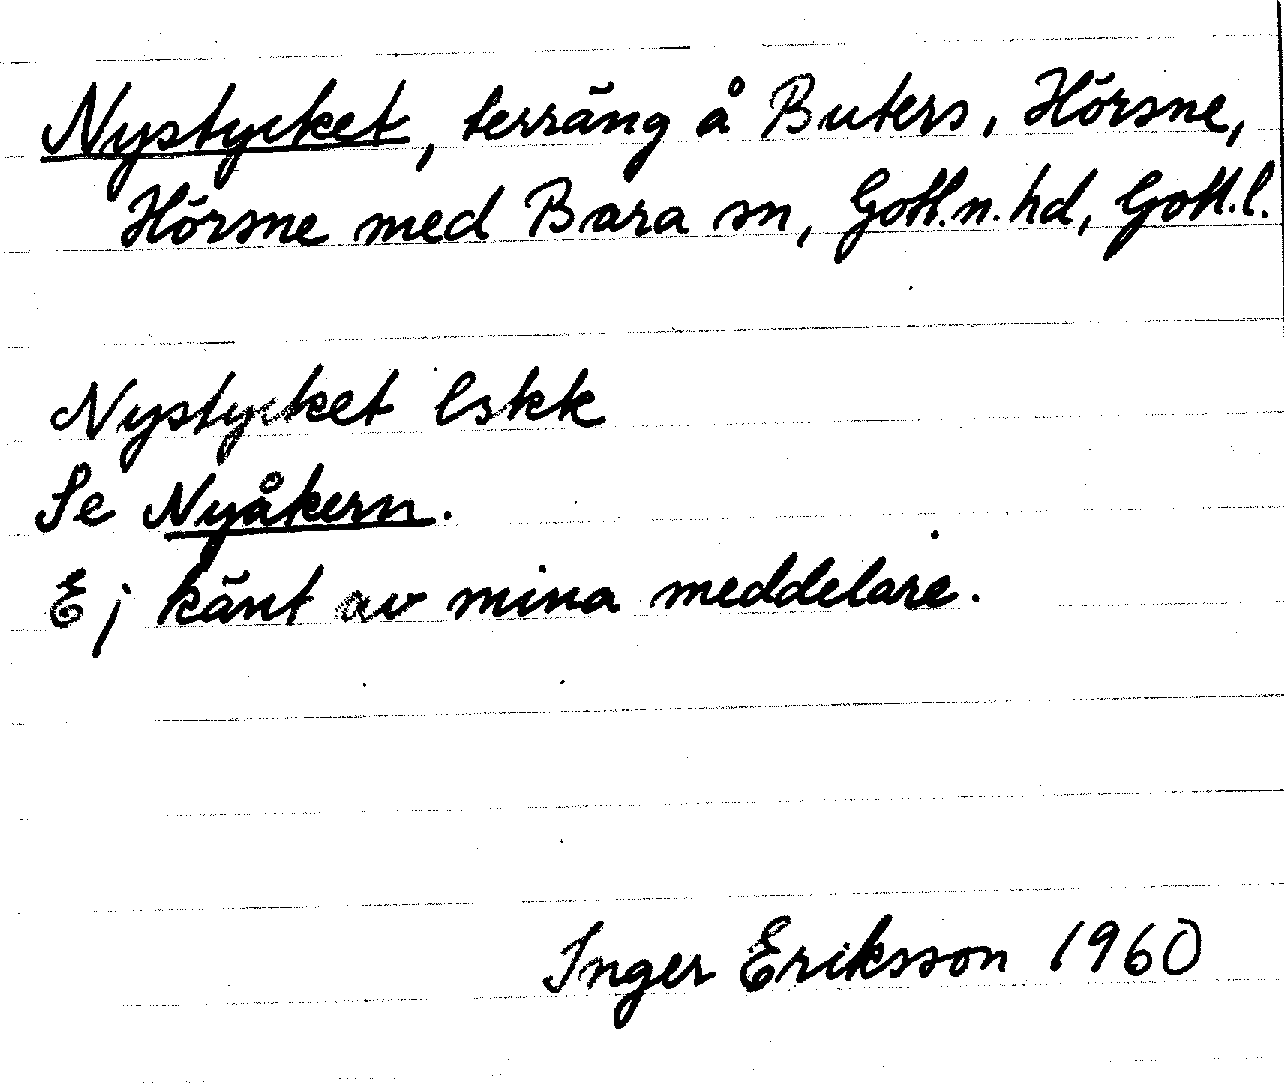 Nystycket, terräng å Buters, Hörsne,
Hörsne med Bara sn, Gotl.n. hd, Gotl.l.
Nystycket Eskk
Se Nyåkern.
Ej känt av mina meddelare.
Inger Eriksson 1960